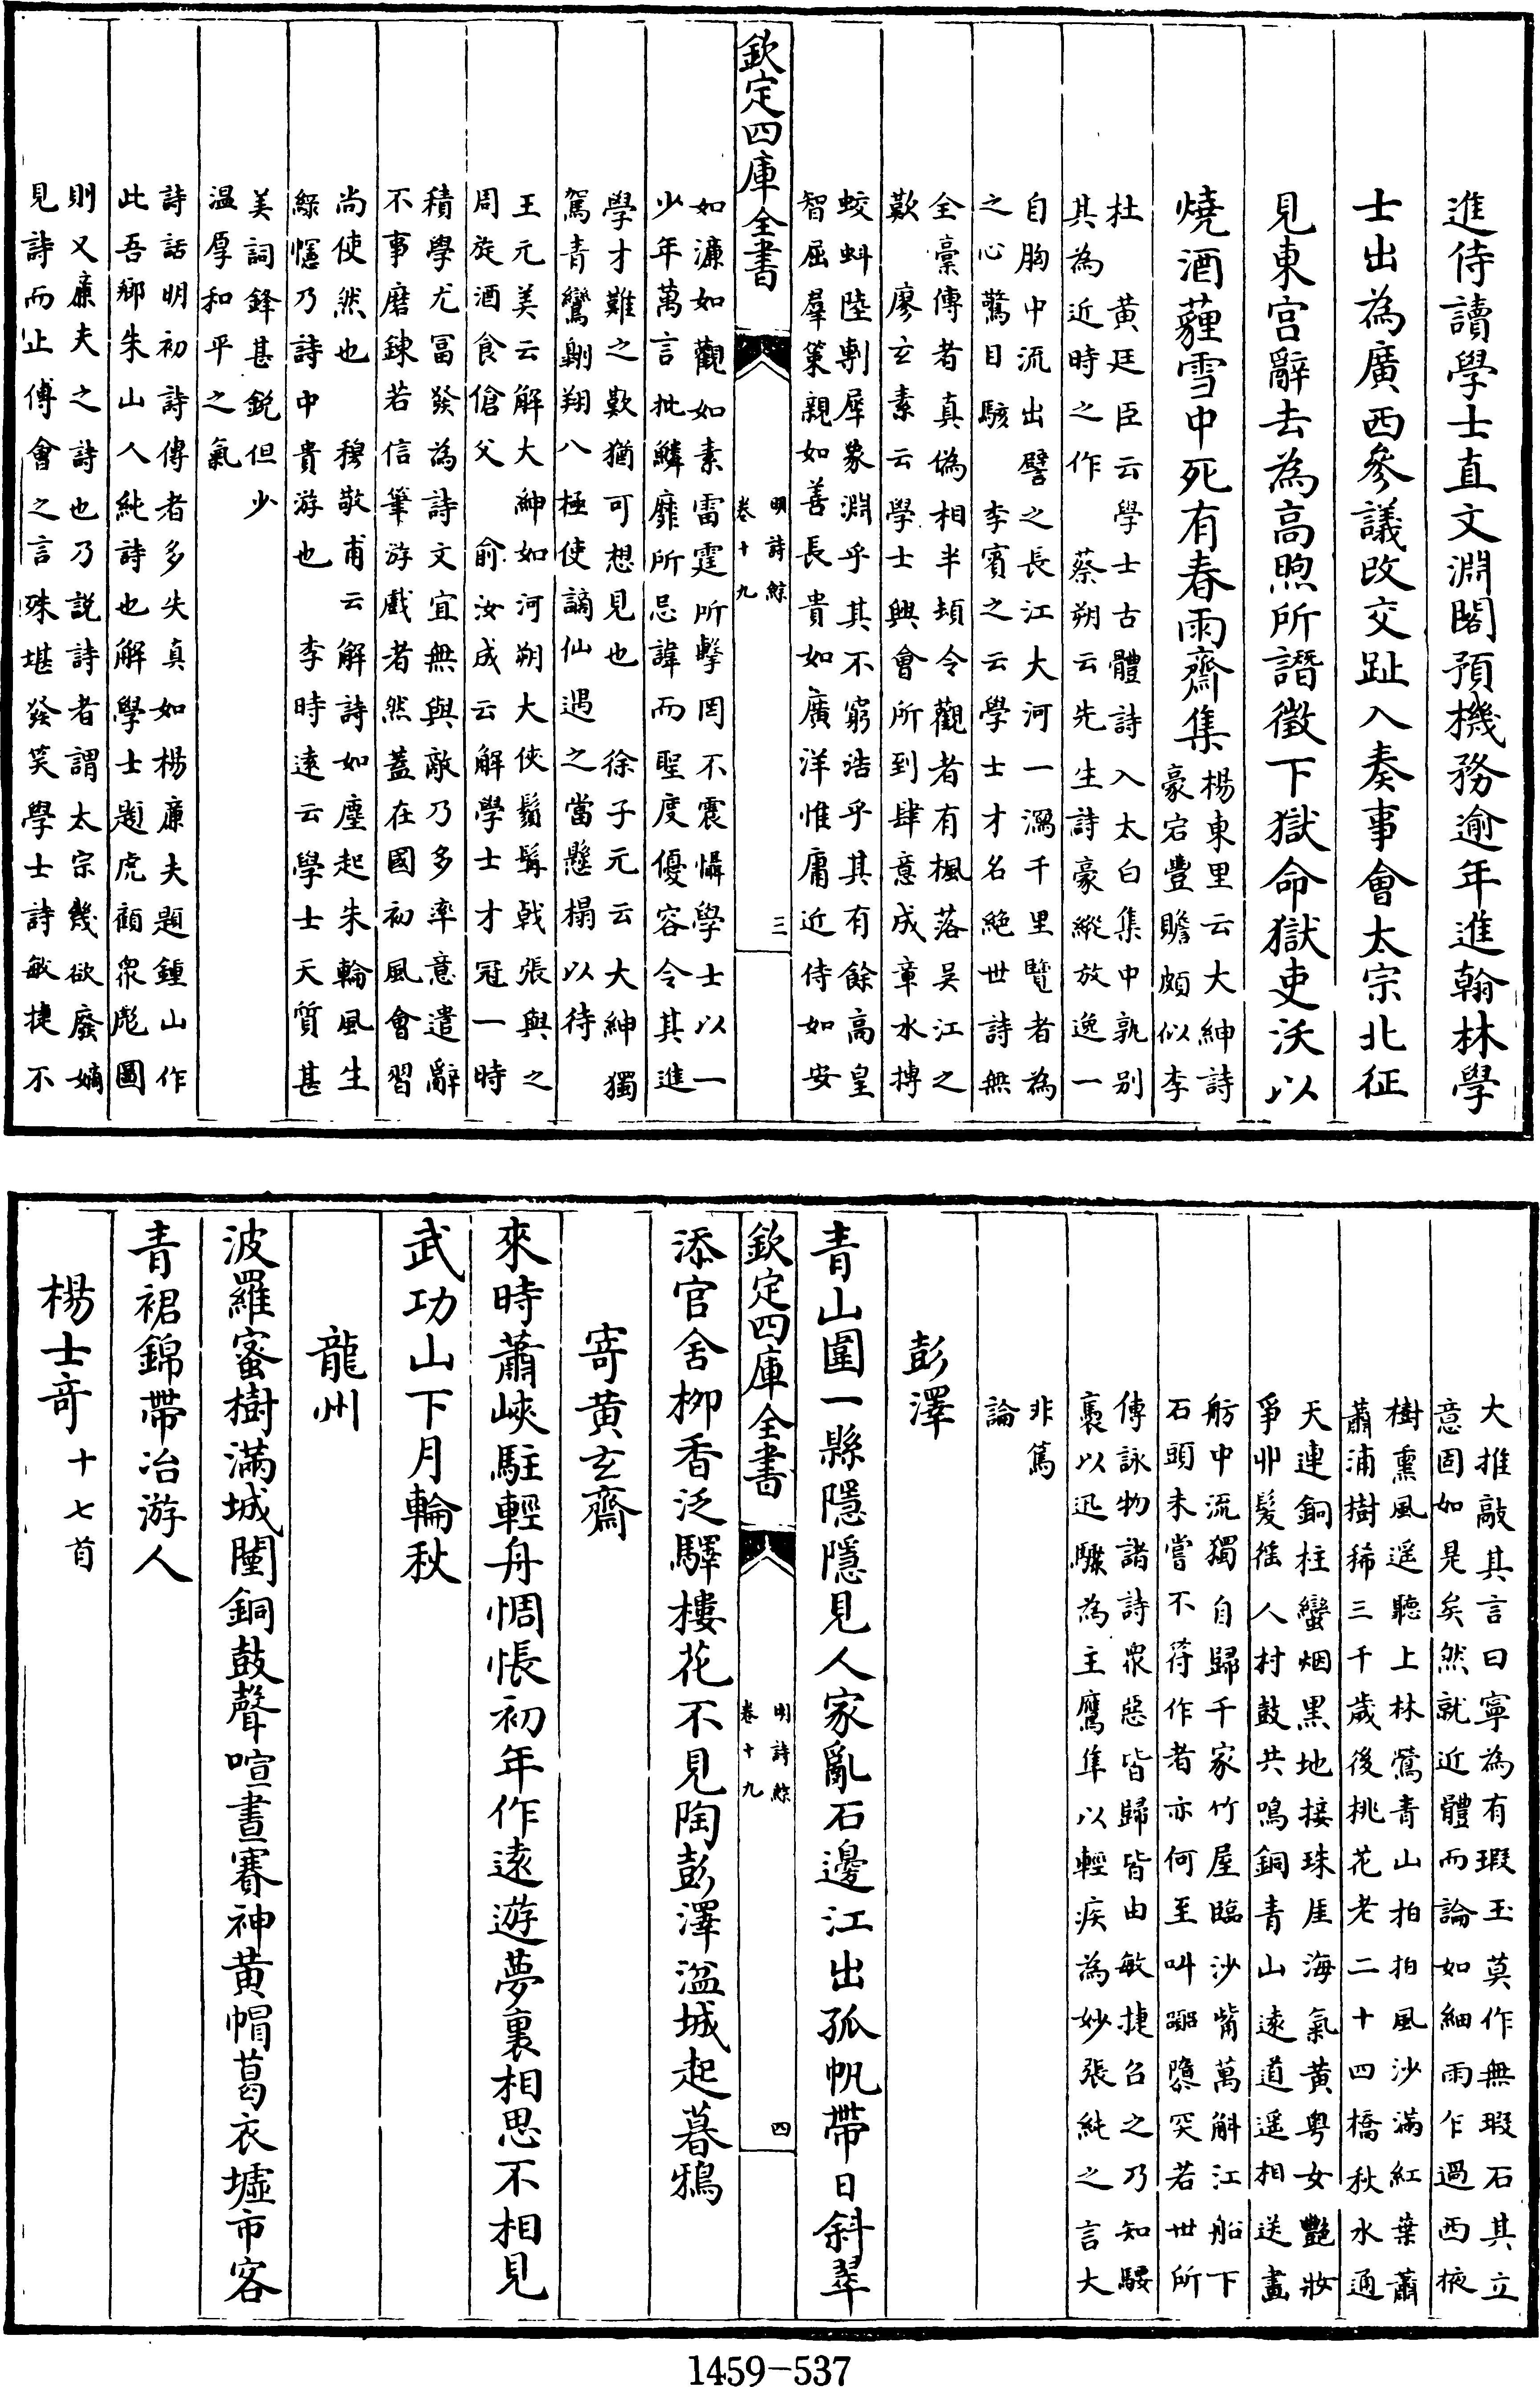 進侍讀學士直文淵閣預機務逾年進翰林學
士出為廣西參議改交趾入奏事會太宗北征
見東宮辭去為高煦所譖徵下獄命獄吏沃以
燒酒薶雪中死有春雨齋集 楊東里云大紳詩
豪宕豐贍頗似李
杜 黃廷臣云學士古體詩入太白集中孰別
其為近時之作 蔡朔云先生詩豪縱放逸一
自胸中流出譬之長江大河一瀉千里覽者為
之心驚目駭 李賓之云學士才名絶世詩無
全稾傳者真偽相半頃令觀者有楓落吳江之
歎 廖玄素云學士興會所到肆意成章水摶
蛟蚪陸剸犀象淵乎其不窮浩乎其有餘高皇
智屈羣策親如善長貴如廣洋惟庸近侍如安
欽定四庫全書
明詩綜
卷十九
三
如濂如觀如素雷霆所擊罔不震慴學士以一
少年萬言批鱗靡所忌諱而聖度優容令其進
學才難之歎猶可想見也 徐子元云大紳獨
駕青鸞翺翔八極使謫仙遇之當懸榻以待
王元美云解大紳如河朔大俠鬚髯戟張與之
周旋酒食傖父 俞汝成云解學士才冠一時
積學尤富發為詩文宜無與敵乃多率意遣辭
不事磨錬若信筆游戲者然蓋在國初風會習
尚使然也 穆敬甫云解詩如塵起朱輪風生
綠幰乃詩中貴游也 李時遠云學士天質甚
美詞鋒甚鋭但少
温厚和平之氣
詩話明初詩傳者多失真如楊廉夫題鍾山作
此吾鄉朱山人純詩也解學士題虎顧衆彪圖
則又廉夫之詩也乃說詩者謂太宗幾欲廢嫡
見詩而止傅會之言殊堪發笑學士詩敏捷不
大推敲其言曰寧為有瑕玉莫作無瑕石其立
意固如是矣然就近體而論如細雨乍過西掖
樹熏風遥聽上林鶯青山拍拍風沙滿紅葉蕭
蕭浦樹稀三千歲後桃花老二十四橋秋水通
天連銅柱蠻烟黒地接珠厓海氣黄粤女艷妝
爭丱髪徭人村鼓共鳴銅青山遠道遥相送畫
舫中流獨自歸千家竹屋臨沙觜萬斛江船下
石頭未嘗不符作者亦何至叫嚻隳突若世所
傳詠物諸詩衆惡皆歸皆由敏捷召之乃知騕
褭以迅驟為主鷹隼以輕疾為妙張純之言大
非篤
論
彭澤
青山圍一縣隱隱見人家亂石邊江出孤帆帶日斜翠
欽定四庫全書
明詩綜
卷十九
四
添官舍柳香泛驛樓花不見陶彭澤湓城起暮鴉
寄黄玄齋
來時蕭峽駐輕舟惆悵初年作遠遊夢裏相思不相見
武功山下月輪秋
龍州
波羅蜜樹滿城闉銅鼓聲喧晝賽神黄帽葛衣墟市客
青裙錦帶冶游人
楊士奇 十七首
1459-537